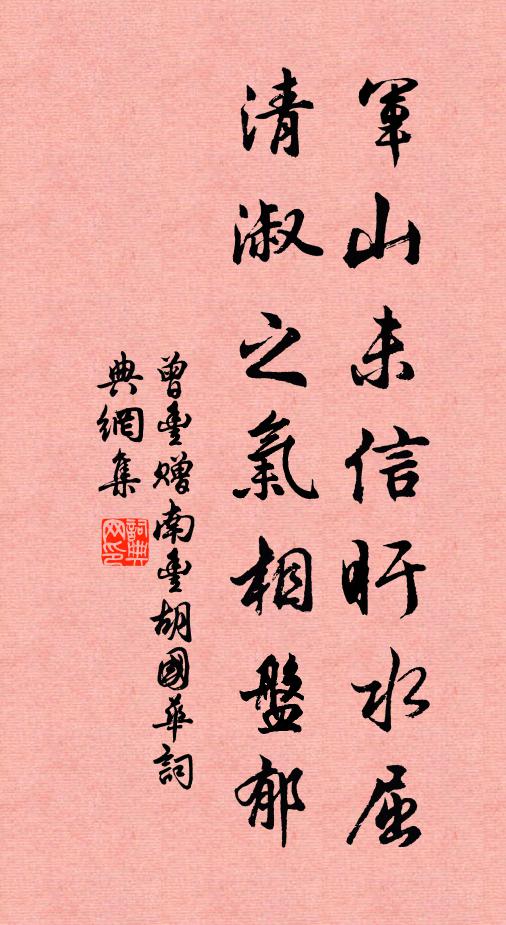 軍山未信盱水屈
清淑之氣相盤郁
曾豐贈南豐胡國華詞
典網集
詞典網印